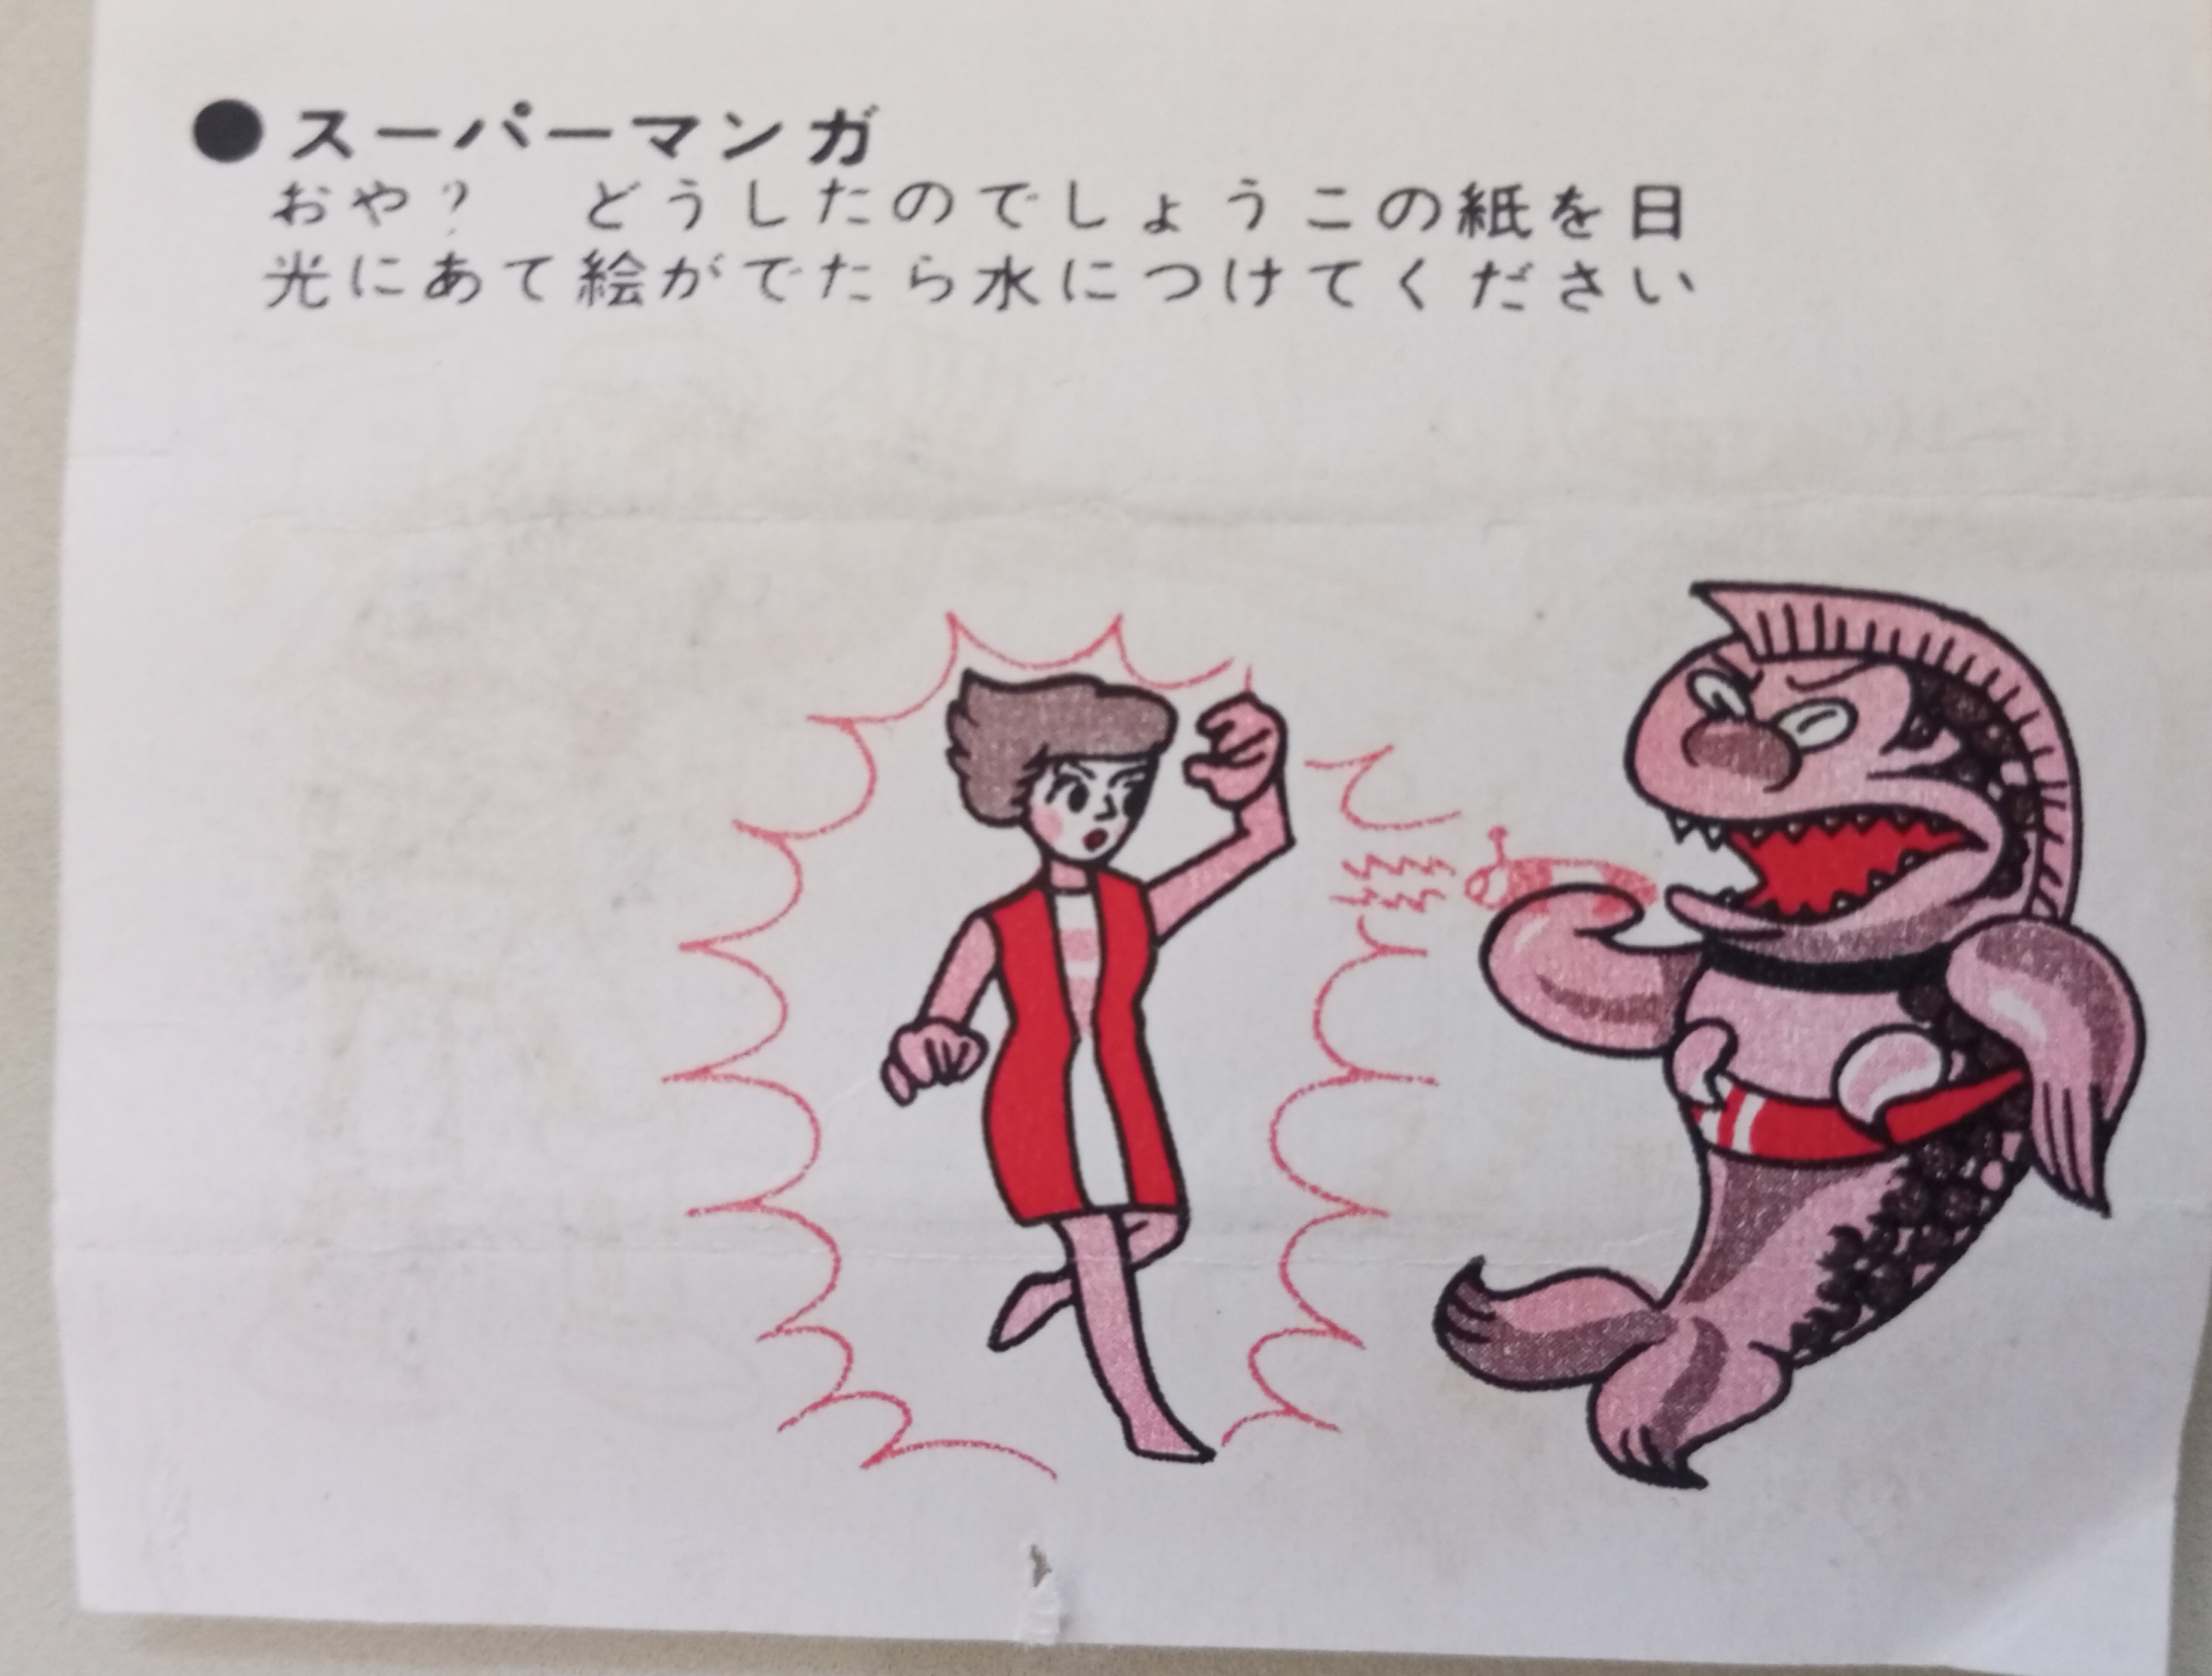 ●スーパーマンガ
おや？　どうしたのでしょうこの紙を日
光にあて絵がでたら水につけてください